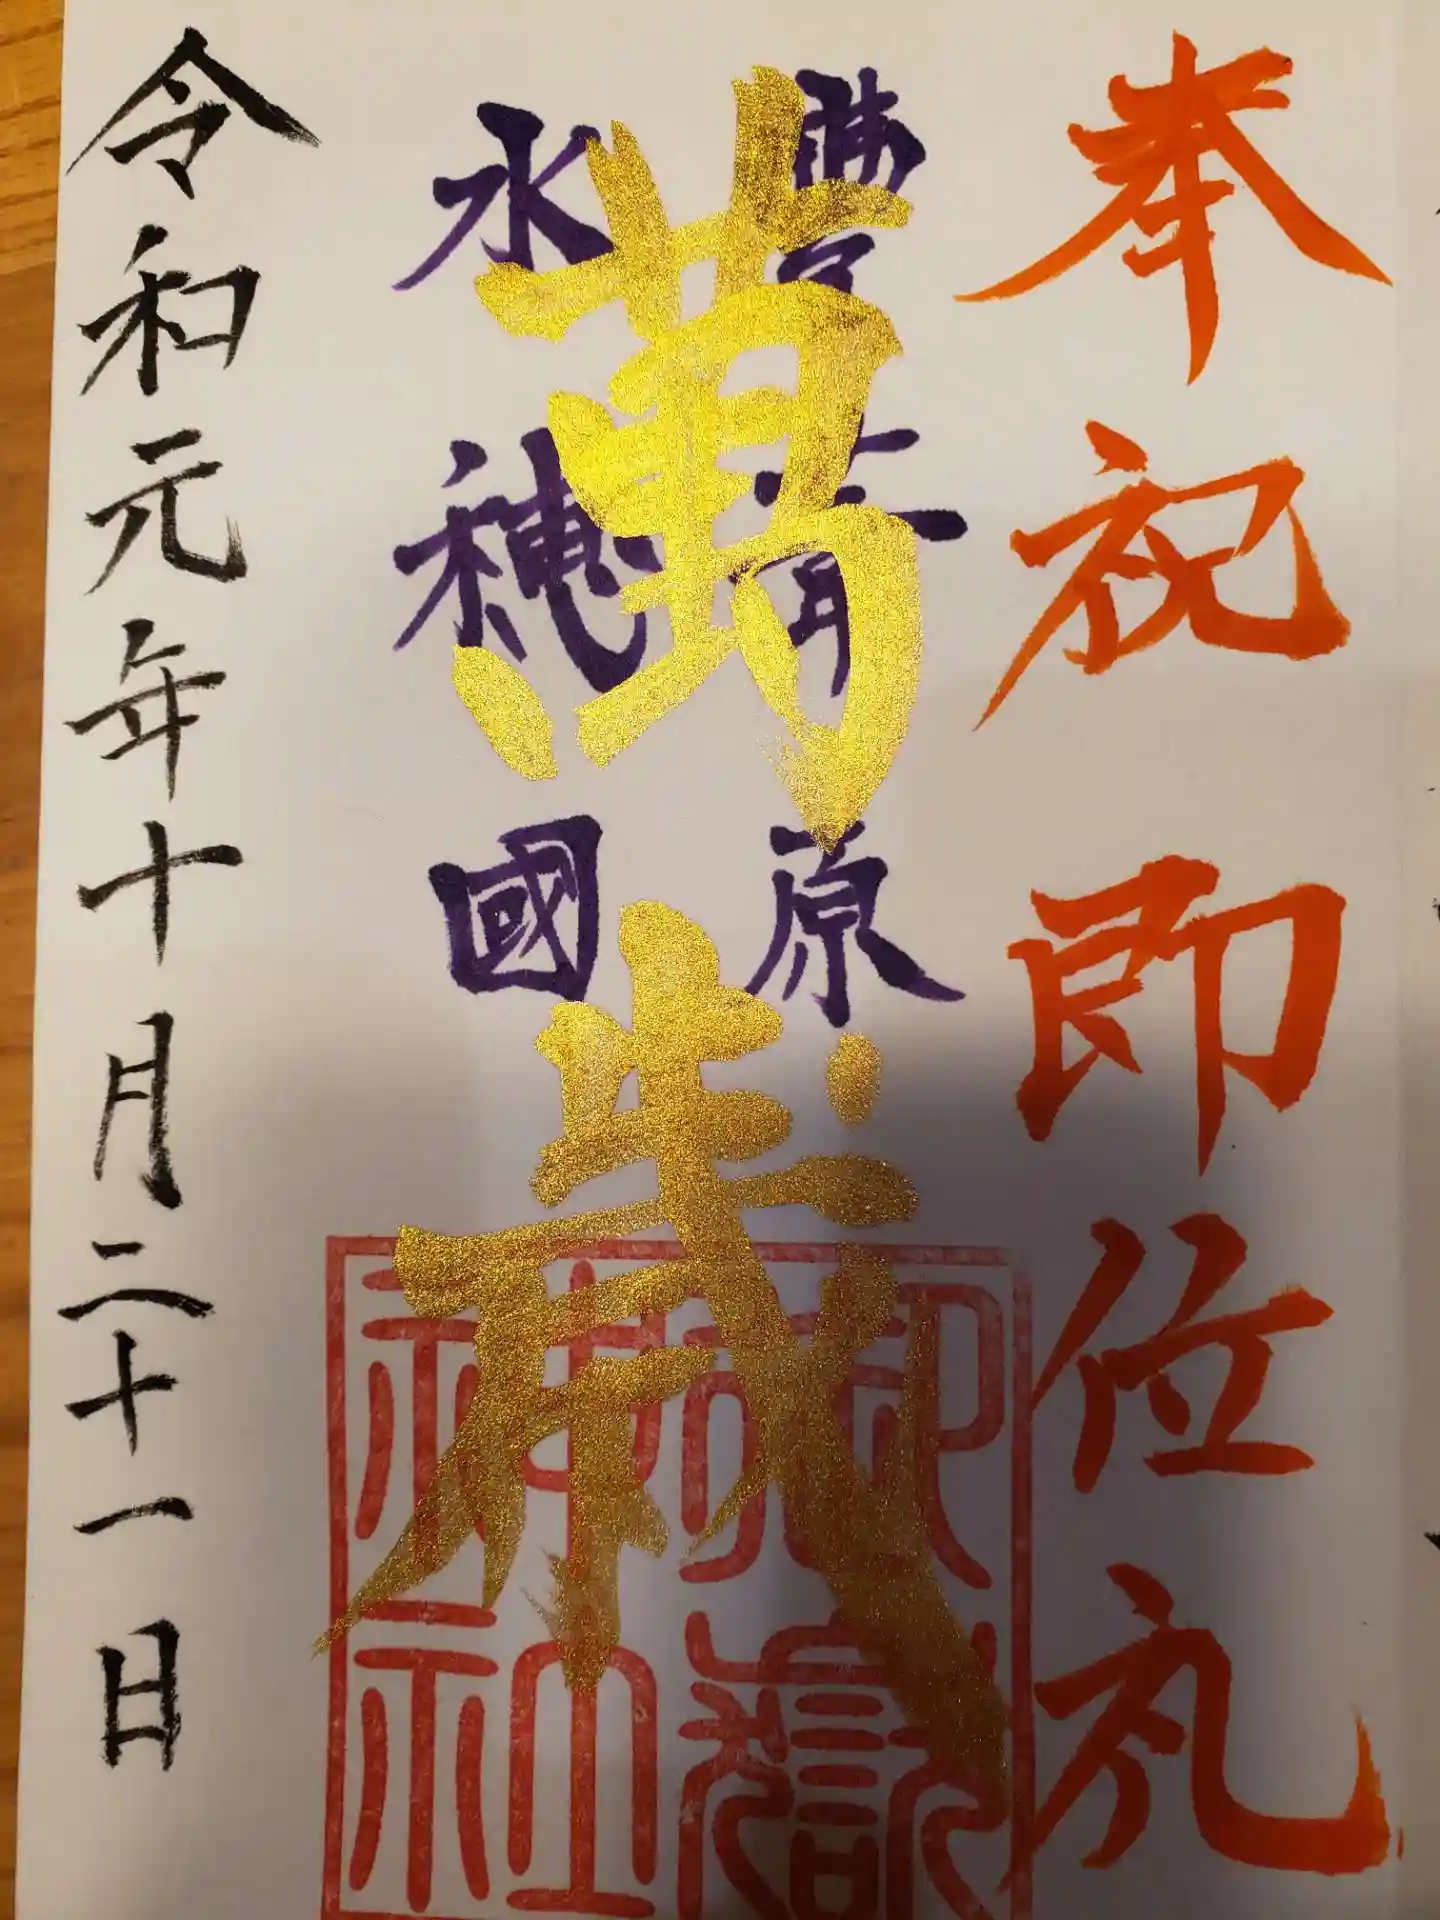 奉祝即位礼
豐葦原
萬歳
水穂國
令和元年十月二十一日
御嶽
神社